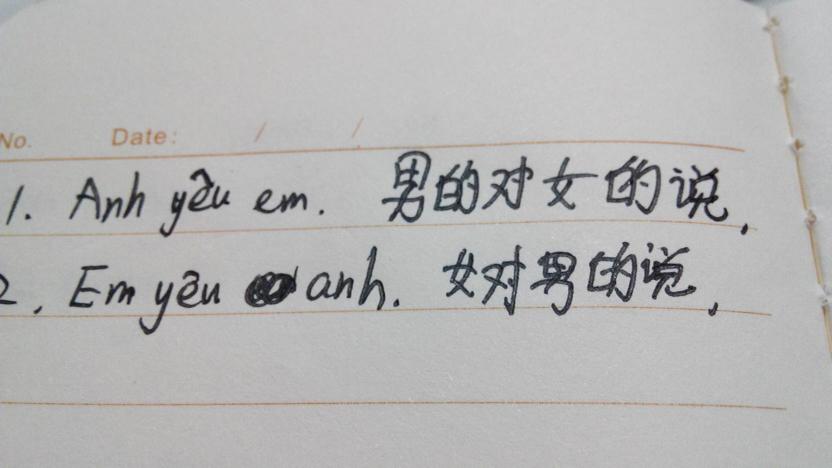 No. Date: / /
1. Anh yêu em. 男的对女的说.
2. Em yêu anh. 女对男的说.